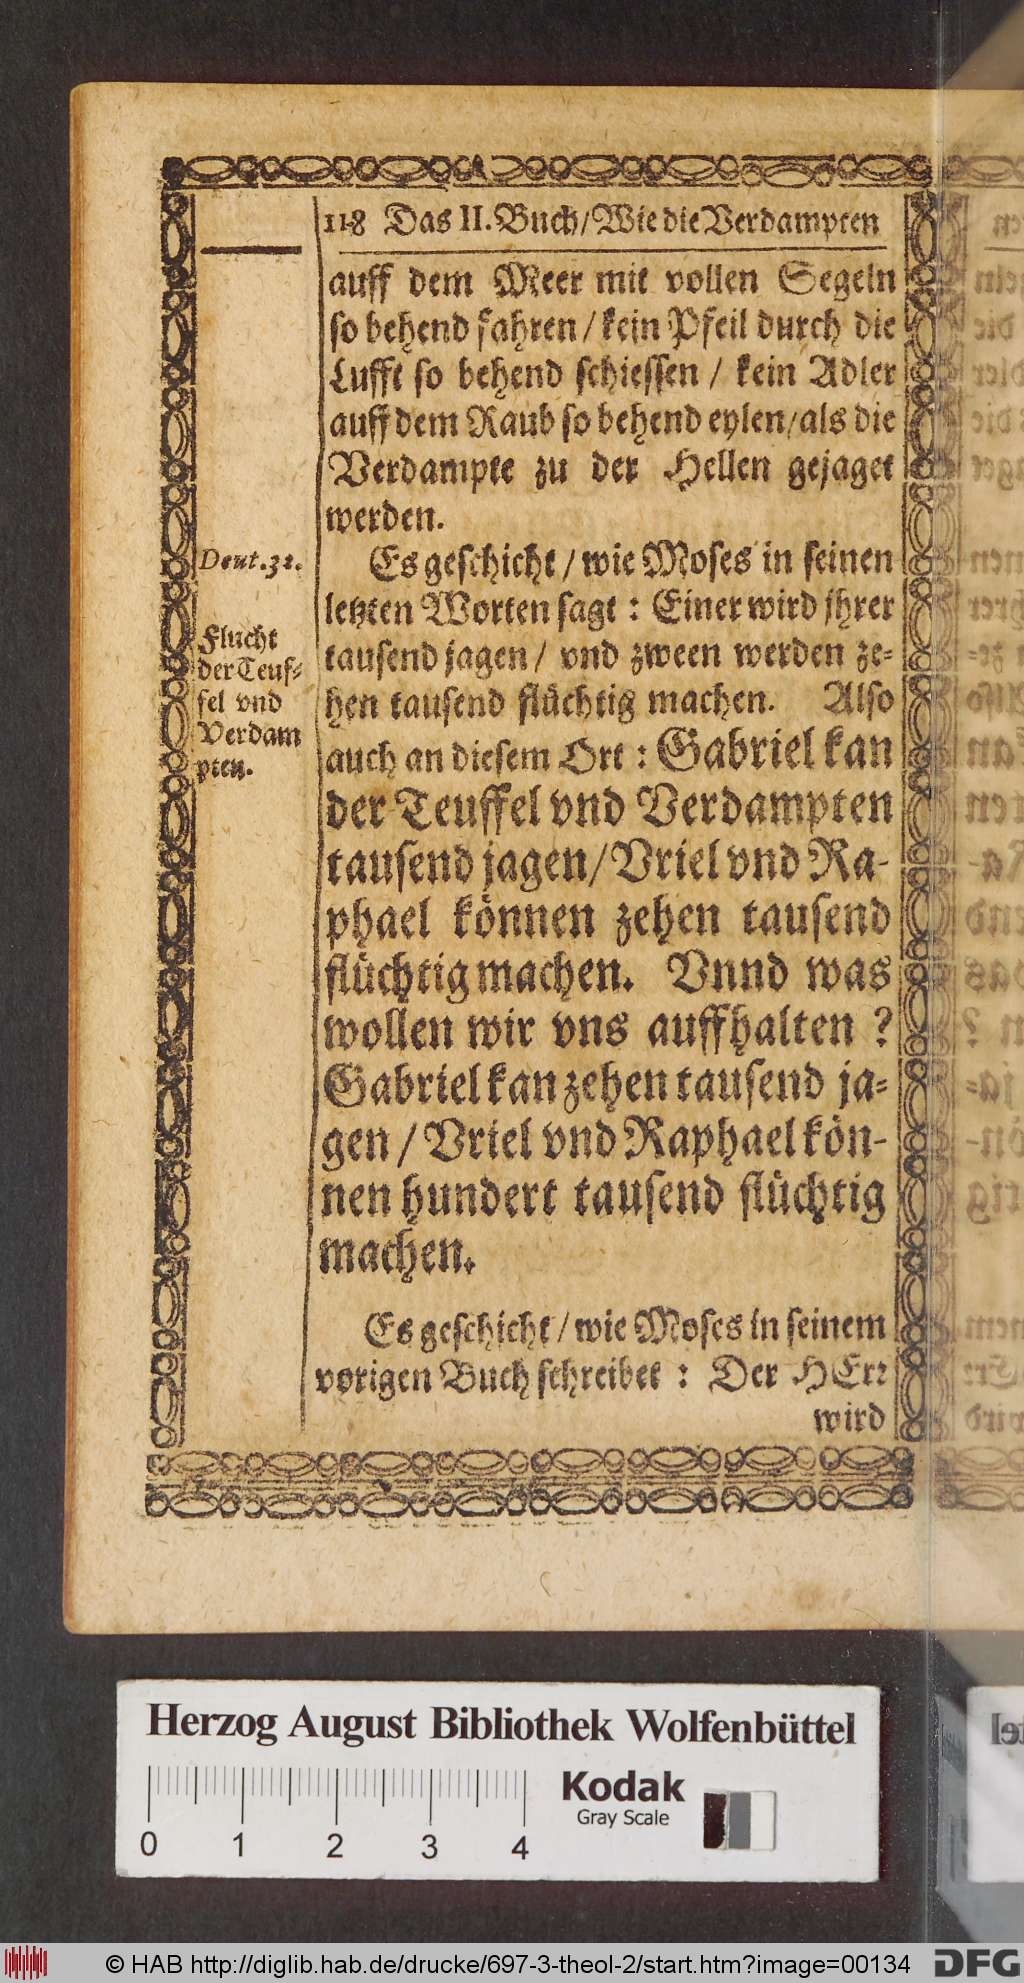 118 Das II. Buch/Wie die Verdampten
auff dem Meer mit vollen Segeln
so behend fahren/kein Pfeil durch die
Lufft so behend schiessen / kein Adler
auff dem Raub so behend eylen/als die
Verdampte zu der Hellen gejaget
werden.
Deut. 32.
Es geschicht/wie Moses in seinen
letzten Worten sagt : Einer wird jhrer
tausend jagen/ vnd zween werden ze-
hen tausend flüchtig machen. Also
auch an diesem Ort : Gabriel kan
der Teuffel vnd Verdampten
tausend jagen/Vriel vnd Ra-
phael können zehen tausend
flüchtig machen. Vnnd was
wollen wir vns auffhalten ?
Gabriel kan zehen tausend ja-
gen / Vriel vnd Raphael kön-
nen hundert tausend flüchtig
machen.
Flucht
der Teuf-
fel vnd
Verdam
pten.
Es geschicht/wie Moses in seinem
vorigen Buch schreibet : Der HErr
wird
Herzog August Bibliothek Wolfenbüttel
0 1 2 3 4
Kodak
Gray Scale
© HAB http://diglib.hab.de/drucke/697-3-theol-2/start.htm?image=00134
DFG